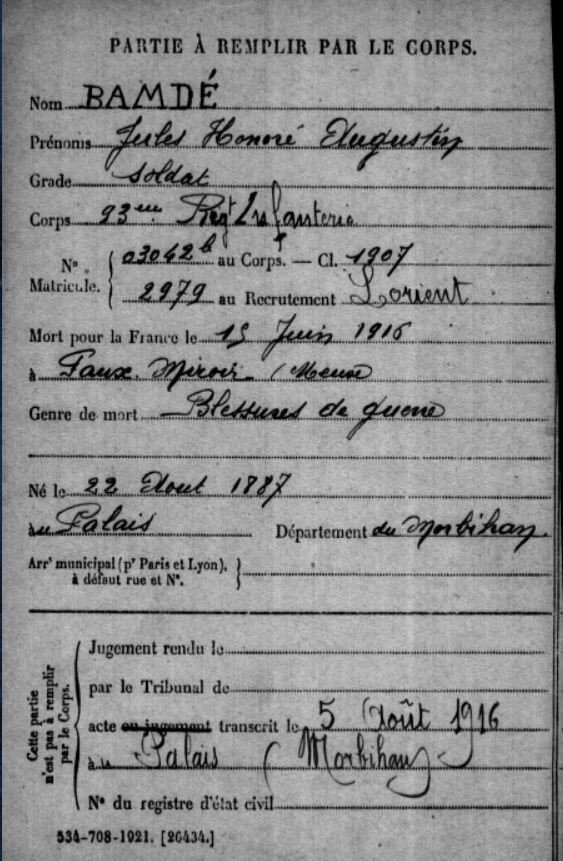 PARTIE À REMPLIR PAR LE CORPS.
Nom BAMDÉ
Prénoms Jules Honoré Augustin
Grade Soldat
Corps 93me Régt Infanterie
N° Matricule. { 03042 b au Corps. — Cl. 1907
2979 au Recrutement Lorient
Mort pour la France le 15 Juin 1916
à Faux Miroir (Meuse
Genre de mort Blessures de guerre
Né le 22 Aout 1887
au Palais Département du Morbihan.
Arrt municipal (pr Paris et Lyon), à défaut rue et N°. }
Cette partie n'est pas à remplir par le Corps.
Jugement rendu le
par le Tribunal de
acte ou jugement transcrit le 5 Août 1916
à u Palais (Morbihan)
N° du registre d'état civil
534-708-1921. [26434.]